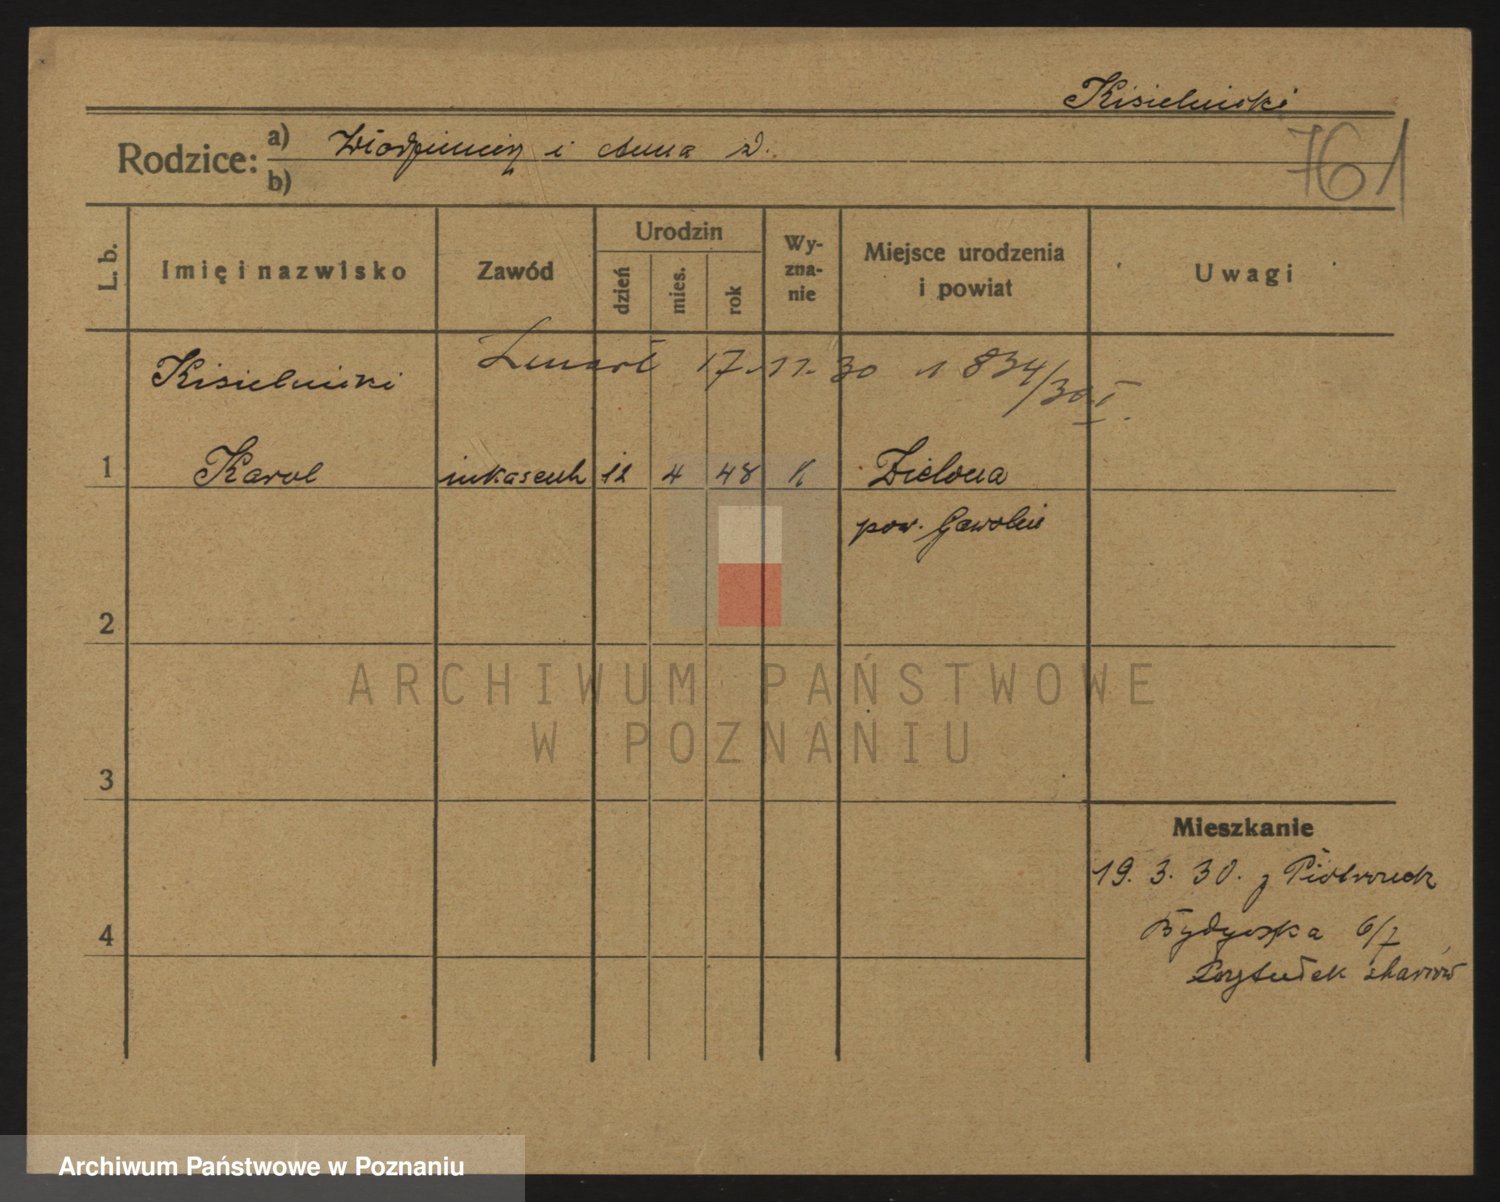 Kisielnicki
Rodzice: a) Włodzimierz i Anna d.
b)
761
L. b.
Imię i nazwisko
Zawód
Urodzin
dzień
mies.
rok
Wy-
zna-
nie
Miejsce urodzenia
i powiat
Uwagi
Kisielnicki
Zmarł 17.11.30 1834/30 I.
1 Karol inkasent 12 4 48 K Zielona
pow. Garwolin
2
3
4
Mieszkanie
19. 3. 30. z Piotrówek
Bydgoska 6/7
Przytułek starców
ARCHIWUM PAŃSTWOWE
W POZNANIU
Archiwum Państwowe w Poznaniu